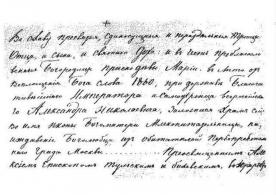 Во славу пресвятыя, единосущныя и нераздельныя Троицы
Отца, и сына, и святаго Духа и в честь преблагосло
венныя Богородицы приснодевы Марии: в лето от
воплощения Бога слова 1860, при державе Благочес
тивейшаго Императора и самодержца всероссийска
го Александра Николаевича, заложися храм сей
во имя иконы Богоматери
иждивением от обывателей
града Преосвященным Алек
сием Епископом Тульским и Белевским, в